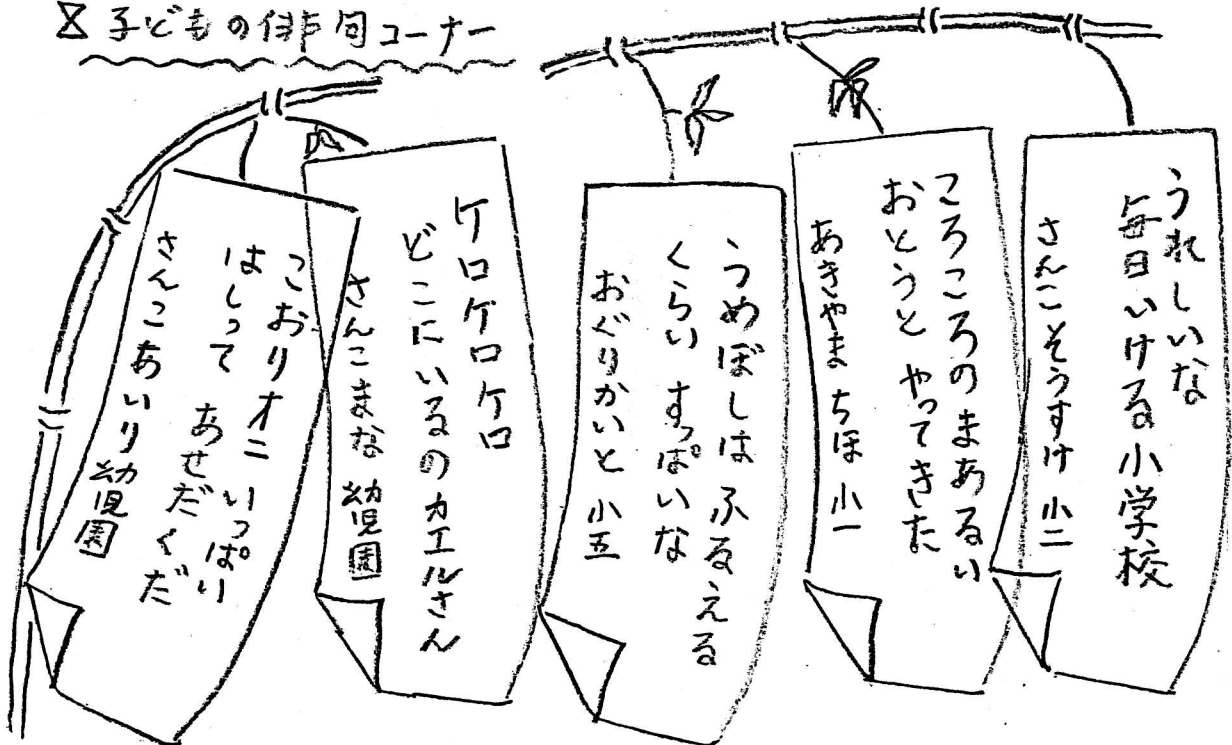 子どもの俳句コーナー
うれしいな
毎日いける小学校
さんこそうすけ 小二
ころころのまあるい
おとうと やってきた
あきやま ちほ 小一
うめぼしは ふるえる
くらい すっぱいな
おぐりかいと 小五
ケロケロケロ
どこにいるのカエルさん
さんこまな 幼児園
こおりオニ いっぱい
はしって あせだくだ
さんこあいり 幼児園